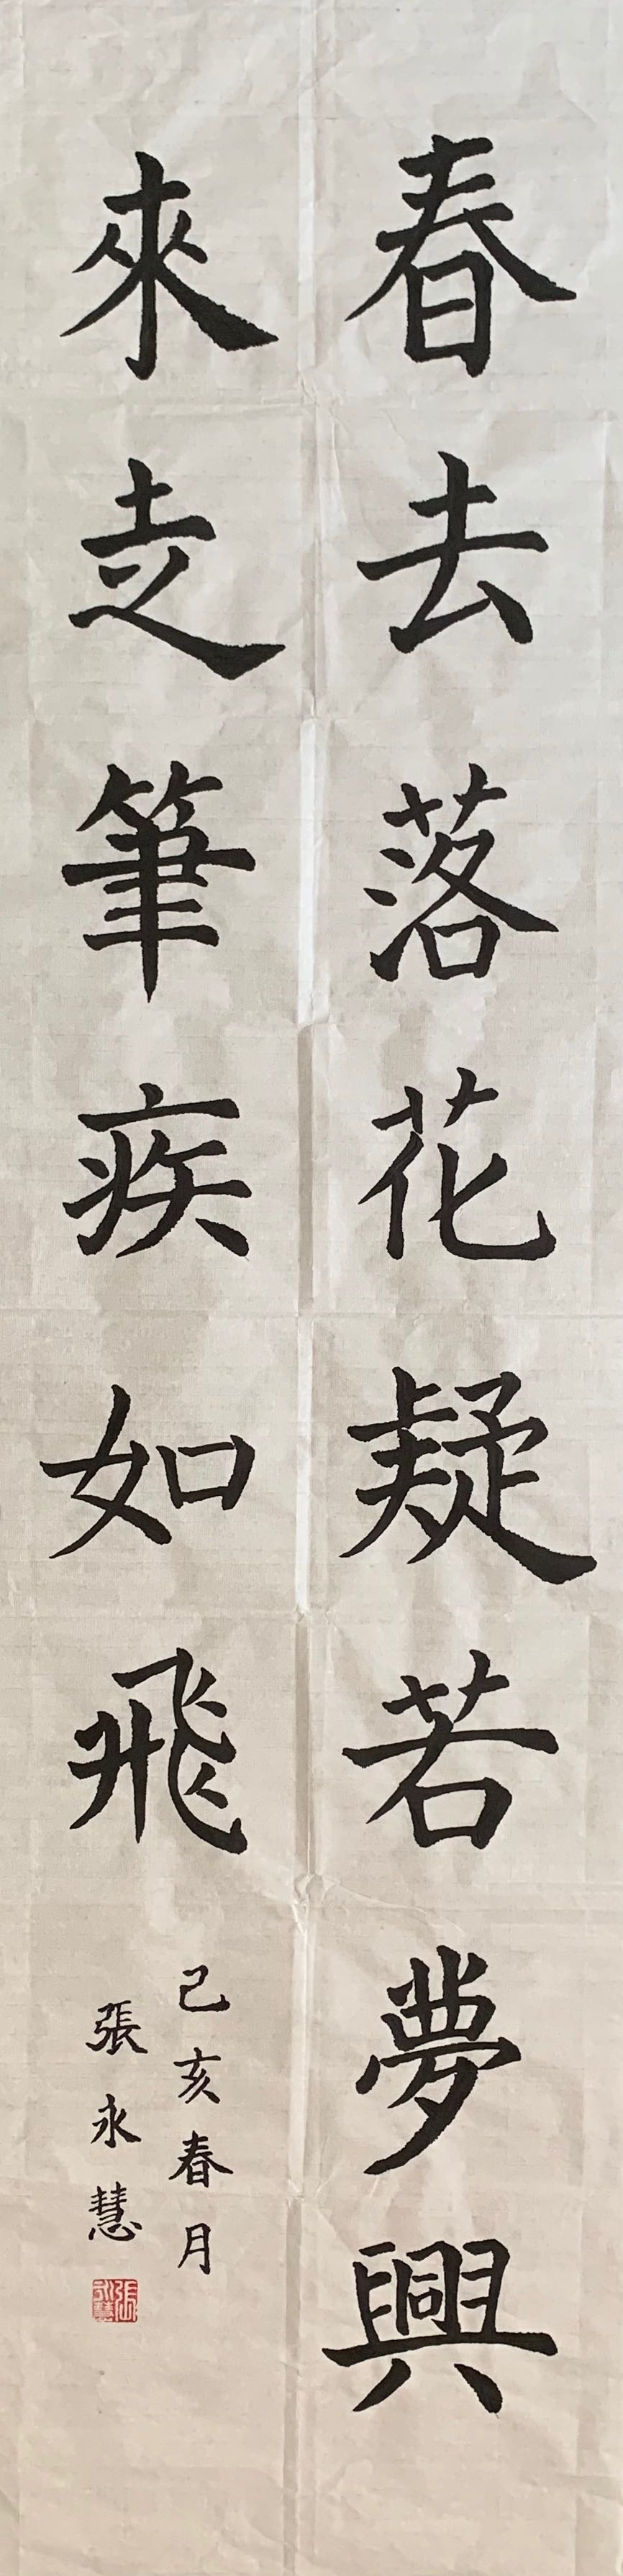 春去落花疑若夢興
來走筆疾如飛
己亥春月
張永慧
張永慧